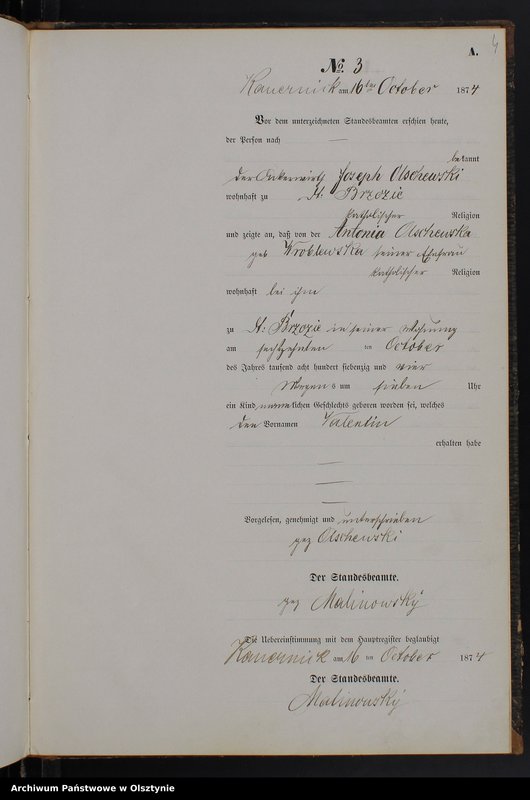 4
A.
№ 3
Kauernick am 16ten October 1874
Vor dem unterzeichneten Standesbeamten erschien heute,
der Person nach —
bekannt
der Ackerwirth Joseph Olschewski
wohnhaft zu St: Brzozie
katholischer Religion
und zeigte an, daß von der Antonia Olschewska
geb Wroblewska seiner Ehefrau
katholischer Religion
wohnhaft bei ihm
zu St: Brzozie in seiner Wohnung
am sechszehnten ten October
des Jahres tausend acht hundert siebenzig und vier
Morgens um sieben Uhr
ein Kind männlichen Geschlechts geboren worden sei, welches
den Vornamen Valentin
erhalten habe
—
—
—
Vorgelesen, genehmigt und unterschrieben
gez Olschewski
Der Standesbeamte.
gez Malinowský
Die Uebereinstimmung mit dem Hauptregister beglaubigt
Kauernick am 16 ten October 1874
Der Standesbeamte.
Malinowský
Archiwum Państwowe w Olsztynie